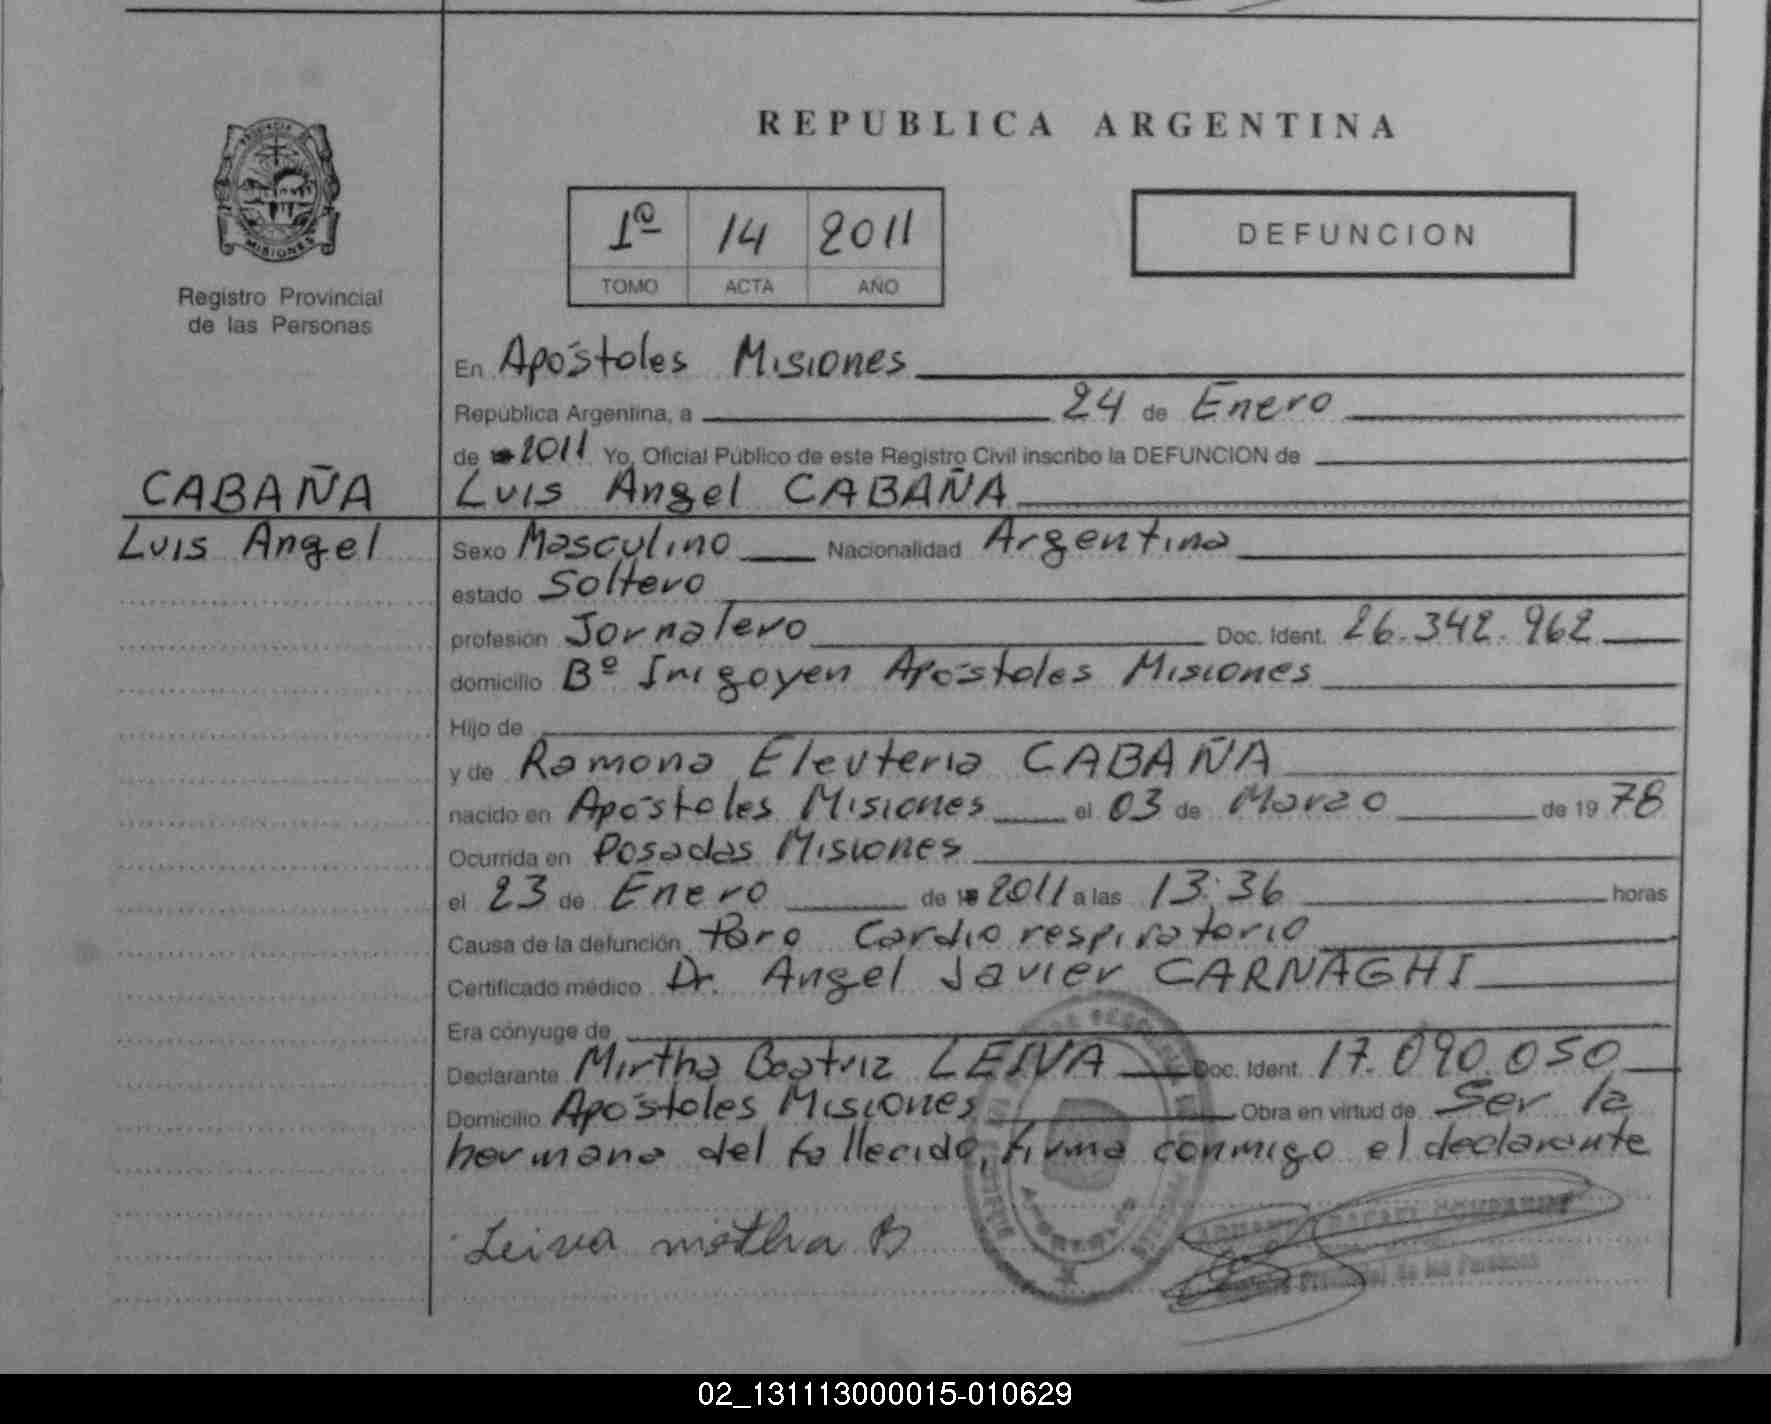 REPUBLICA ARGENTINA
PROVINCIA
MISIONES
Registro Provincial
de las Personas
1º 14 2011
TOMO ACTA AÑO
DEFUNCION
En Apóstoles Misiones
República Argentina, a 24 de Enero
de 2011 Yo, Oficial Público de este Registro Civil inscribo la DEFUNCION de
CABAÑA
Luis Angel
Luis Angel CABAÑA
Sexo Masculino Nacionalidad Argentina
estado Soltero
profesión Jornalero Doc. Ident. 26.342.962
domicilio Bº Irigoyen Apóstoles Misiones
Hijo de
y de Ramona Eleuteria CABAÑA
nacido en Apóstoles Misiones el 03 de Marzo de 1978
Ocurrida en Posadas Misiones
el 23 de Enero de 2011 a las 13:36 horas
Causa de la defunción Paro Cardio respiratorio
Certificado médico Dr. Angel Javier CARNAGHI
Era cónyuge de
Declarante Mirtha Beatriz LEIVA Doc. Ident. 17.090.050
Domicilio Apóstoles Misiones Obra en virtud de Ser la
hermana del fallecido, firma conmigo el declarante
Leiva mirtha B
RAFAEL
Provincial de las Personas
APOSTOLES
02_131113000015-010629